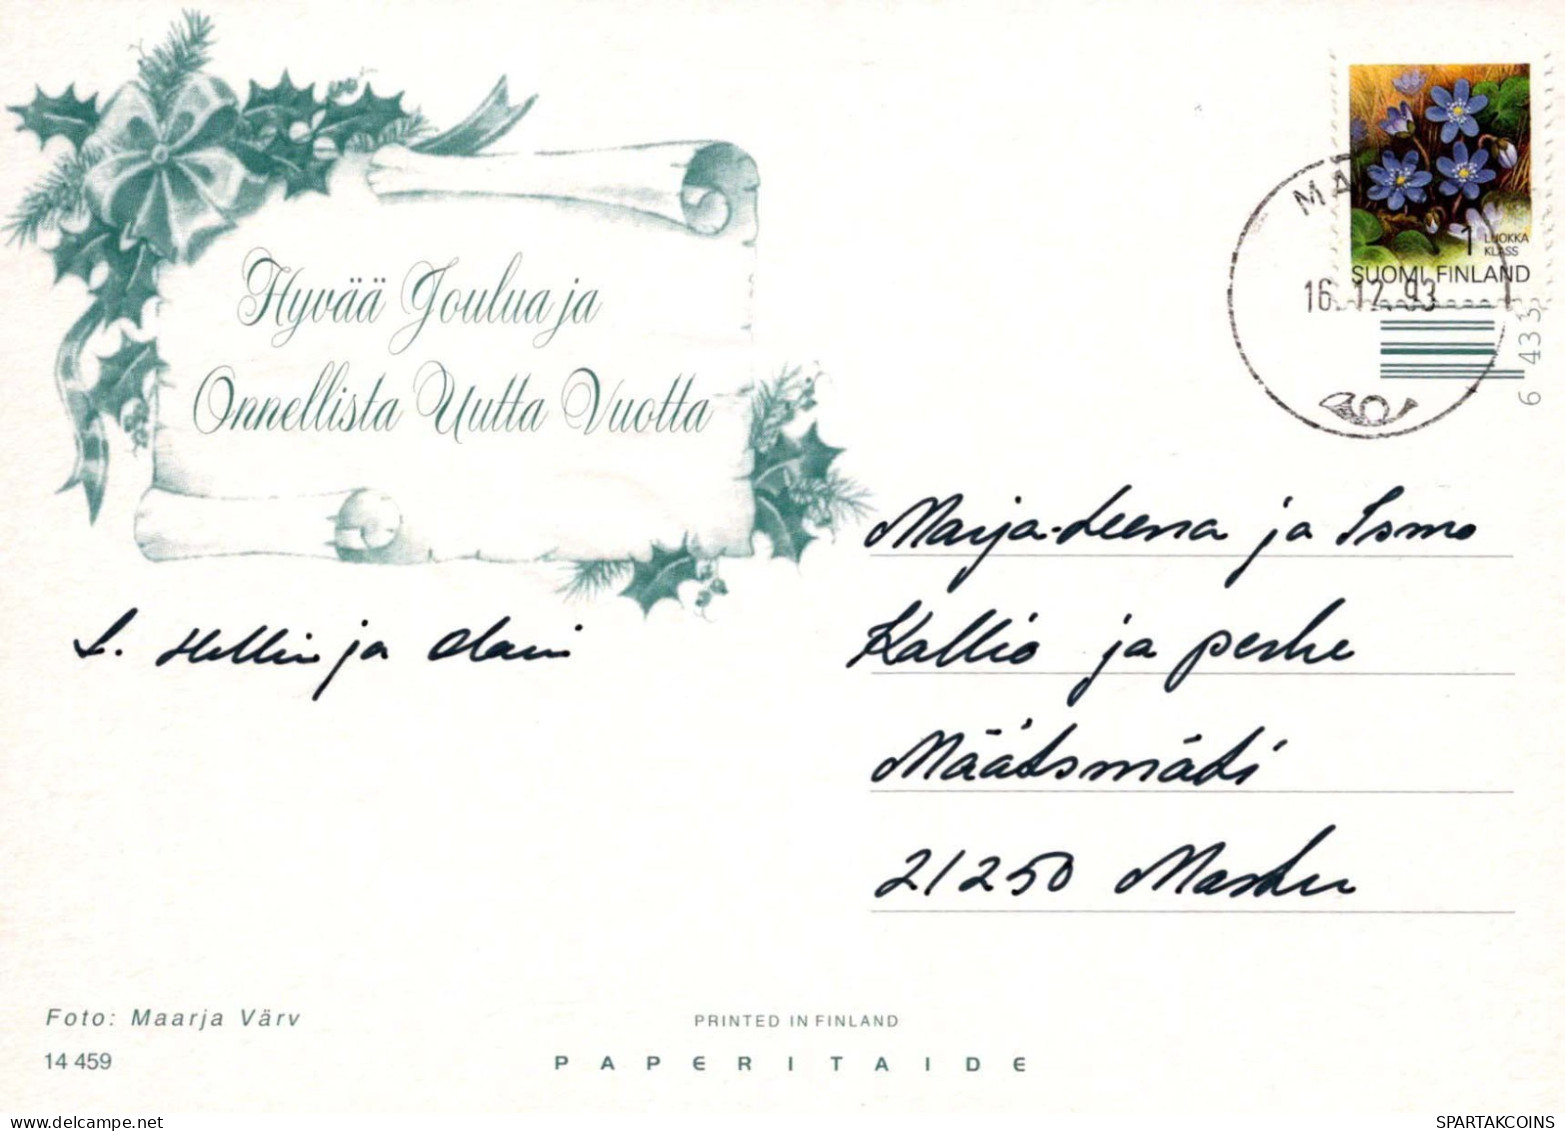 Hyvää Joulua ja
Onnellista Uutta Vuotta
1 LUOKKA
KLASS
SUOMI FINLAND
MA
16.12.93
6 433
Marja-Leena ja Ismo
Kallio ja perhe
21250 Masku
T. Hellin ja Olavi
Foto: Maarja Värv
14 459
PRINTED IN FINLAND
PAPERITAIDE
SPARTAKCOINS